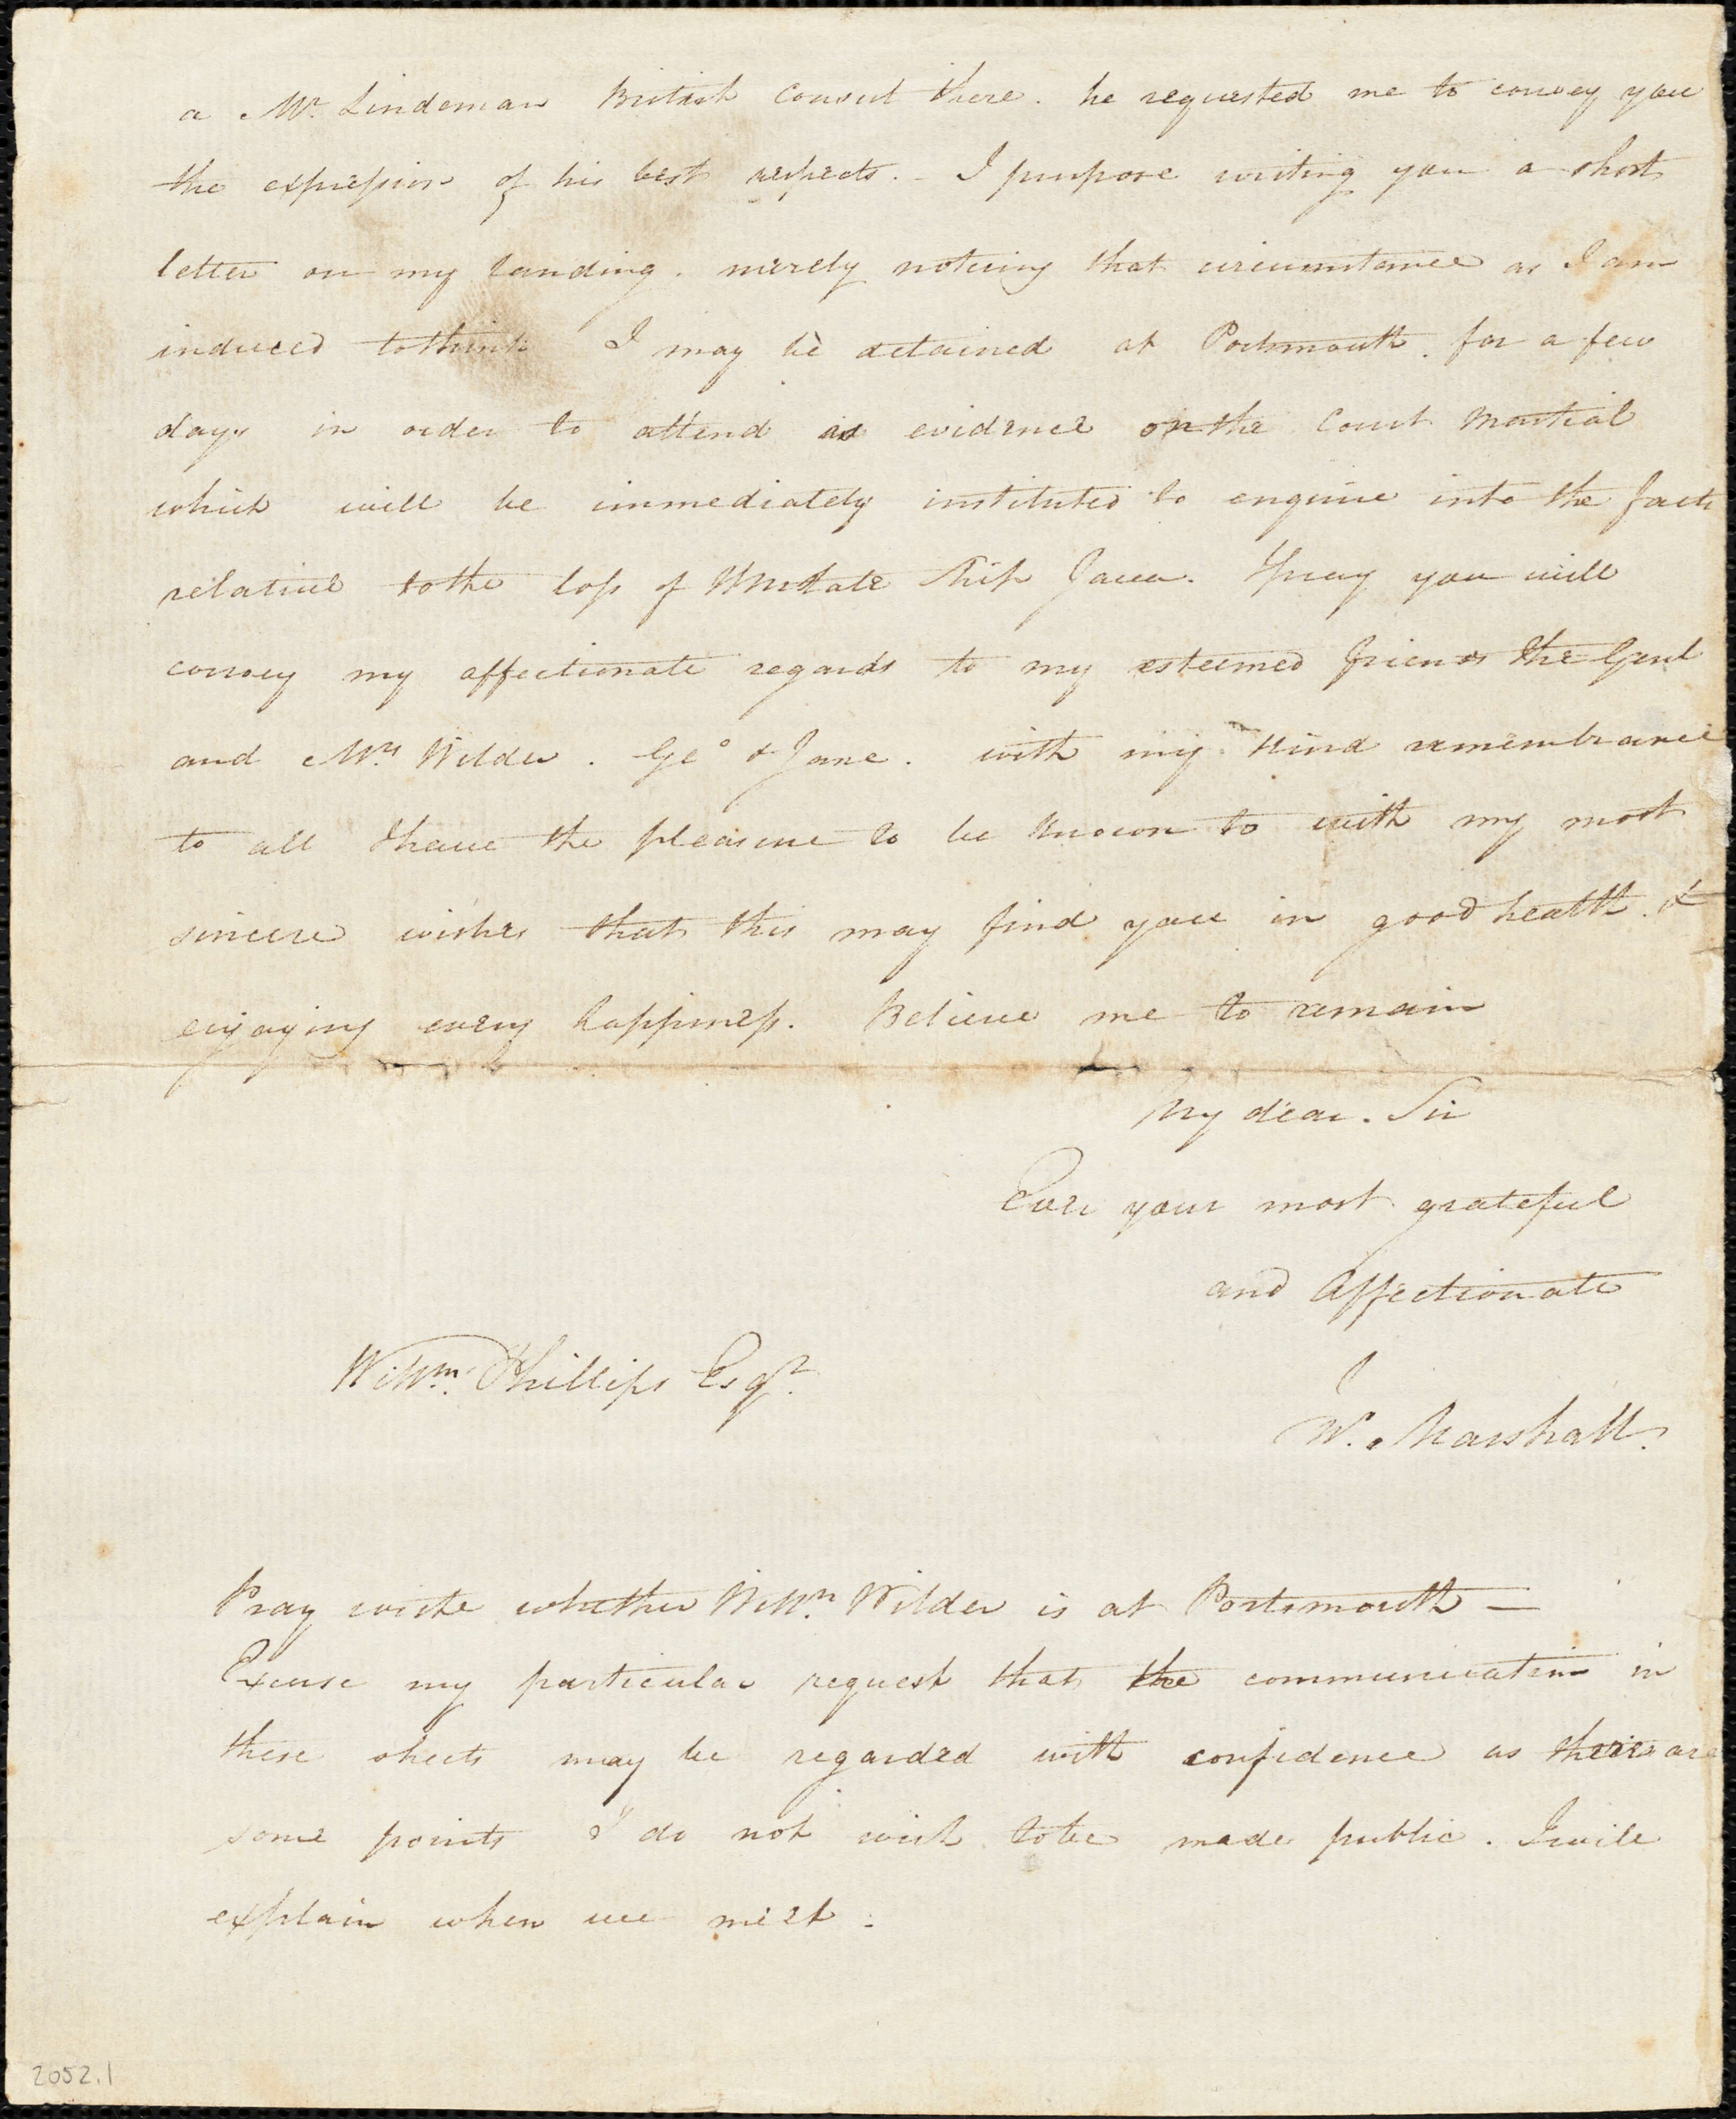 a Mr. Lindeman British Consul there. he requested me to convey you
the expression of his best respects. - I purpose writing you a short
letter on my landing. merely noticing that circumstance as I am
induced to think I may be detained at Portsmouth. for a few
days in order to attend as evidence on the Court Martial
which will be immediately instituted to enquire into the facts
relative to the loss of Ship Java. I pray you will
convey my affectionate regards to my esteemed friends the Genl
and Mrs Wilder. Geo & Jane. with my kind remembrance
to all I have the pleasure to be known to with my most
sincere wishes that this may find you in good health. &
enjoying every happiness. Believe me to remain
My dear. Sir
Ever your most grateful
and Affectionate
Willm. Phillips Esqr.
W. Marshall.
Pray write whether Willm. Wilder is at Portsmouth —
Excuse my particular request that the communication in
these sheets may be regarded with confidence as there are
some points I do not wish to be made public. I will
explain when we meet.
2052.1